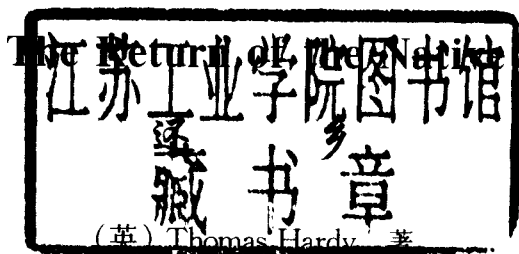 The Return of the Native
江苏工业学院图书馆
藏书章
(英) Thomas Hardy 著